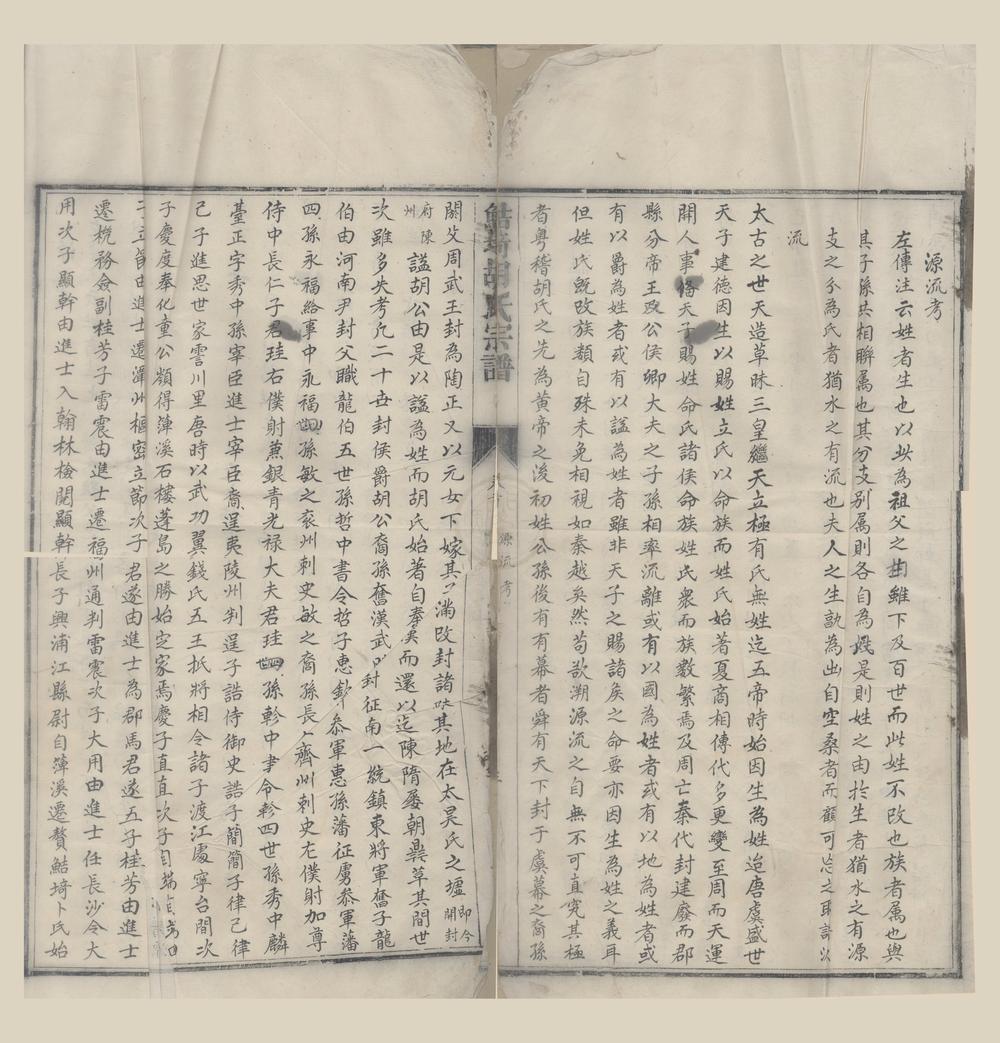 源流考
左傳注云姓者生也以此為祖父之雖下及百世而此姓不改也族者属也與
其子孫共相聯属也其分支别属則各自為是則姓之由扵生者猶水之有源
支之分為氏者猶水之有流也夫人之生歆為出自空桑者而顧可忘之耶詩以
流
太古之世天造草昧三皇繼天立極有氏無姓迄五帝時始因生為姓迨唐虞盛世
天子建德因生以賜姓立氏以命族而姓氏始著夏商相傳代多更變至周而天運
開人事俻天子賜姓命氏諸侯命族姓氏衆而族数繁焉及周亡秦代封建廢而郡
縣分帝王政公侯卿大夫之子孫相率流離或有以國為姓者或有以地為姓者或
有以爵為姓者或有以謚為姓者雖非天子之賜諸矦之命要亦因生為姓之義耳
但姓氏既改族類自殊未免相視如秦越奚然苟欲溯源流之自無不可直究其極
者粤稽胡氏之先為黄帝之後初姓公孫後有有幕者舜有天下封于虞幕之裔孫
鮚埼胡氏宗譜
源流考
閼父周武王封為陶正又以元女下嫁其子滿改封諸陳其地在太昊氏之墟即今開封
府陳州謚胡公由是以謚為姓而胡氏始著自秦漢而還以迄陳隋屡朝鼎革其間世
次雖多失考凢二十世封侯爵胡公裔孫奮漢武时封征南一統鎮東將軍奮子龍
伯由河南尹封父職龍伯五世孫哲中書令哲子惠叅軍惠孫藩征虜叅軍藩
四孫永福給軍中永福四世孫敏之衮州刺史敏之裔孫長仁齊州刺史左僕射加尊
侍中長仁子君珪右僕射蕭銀青光禄大夫君珪四世孫軫中聿令軫四世孫秀中麟
臺正字秀中孫宰臣進士宰臣裔逞夷陵州判逞子誥侍御史誥子簡簡子律己律
己子進思世家霅川里唐時以武功翼錢氏五王扺將相令諸子渡江處寧台間次
子慶度奉化童公嶺得蓱溪石樓蓬島之勝始定家焉慶子直直次子
子立節由進士遷潭州樞密立節次子君遂由進士為郡馬君遂五子桂芳由進士
遷税務僉副桂芳子雷震由進士遷福州通判雷震次子大用由進士任長沙令大
用次子顯幹由進士入翰林檢閲顯幹長子興浦江縣尉自蓱溪遷贅鮚埼卜氏始